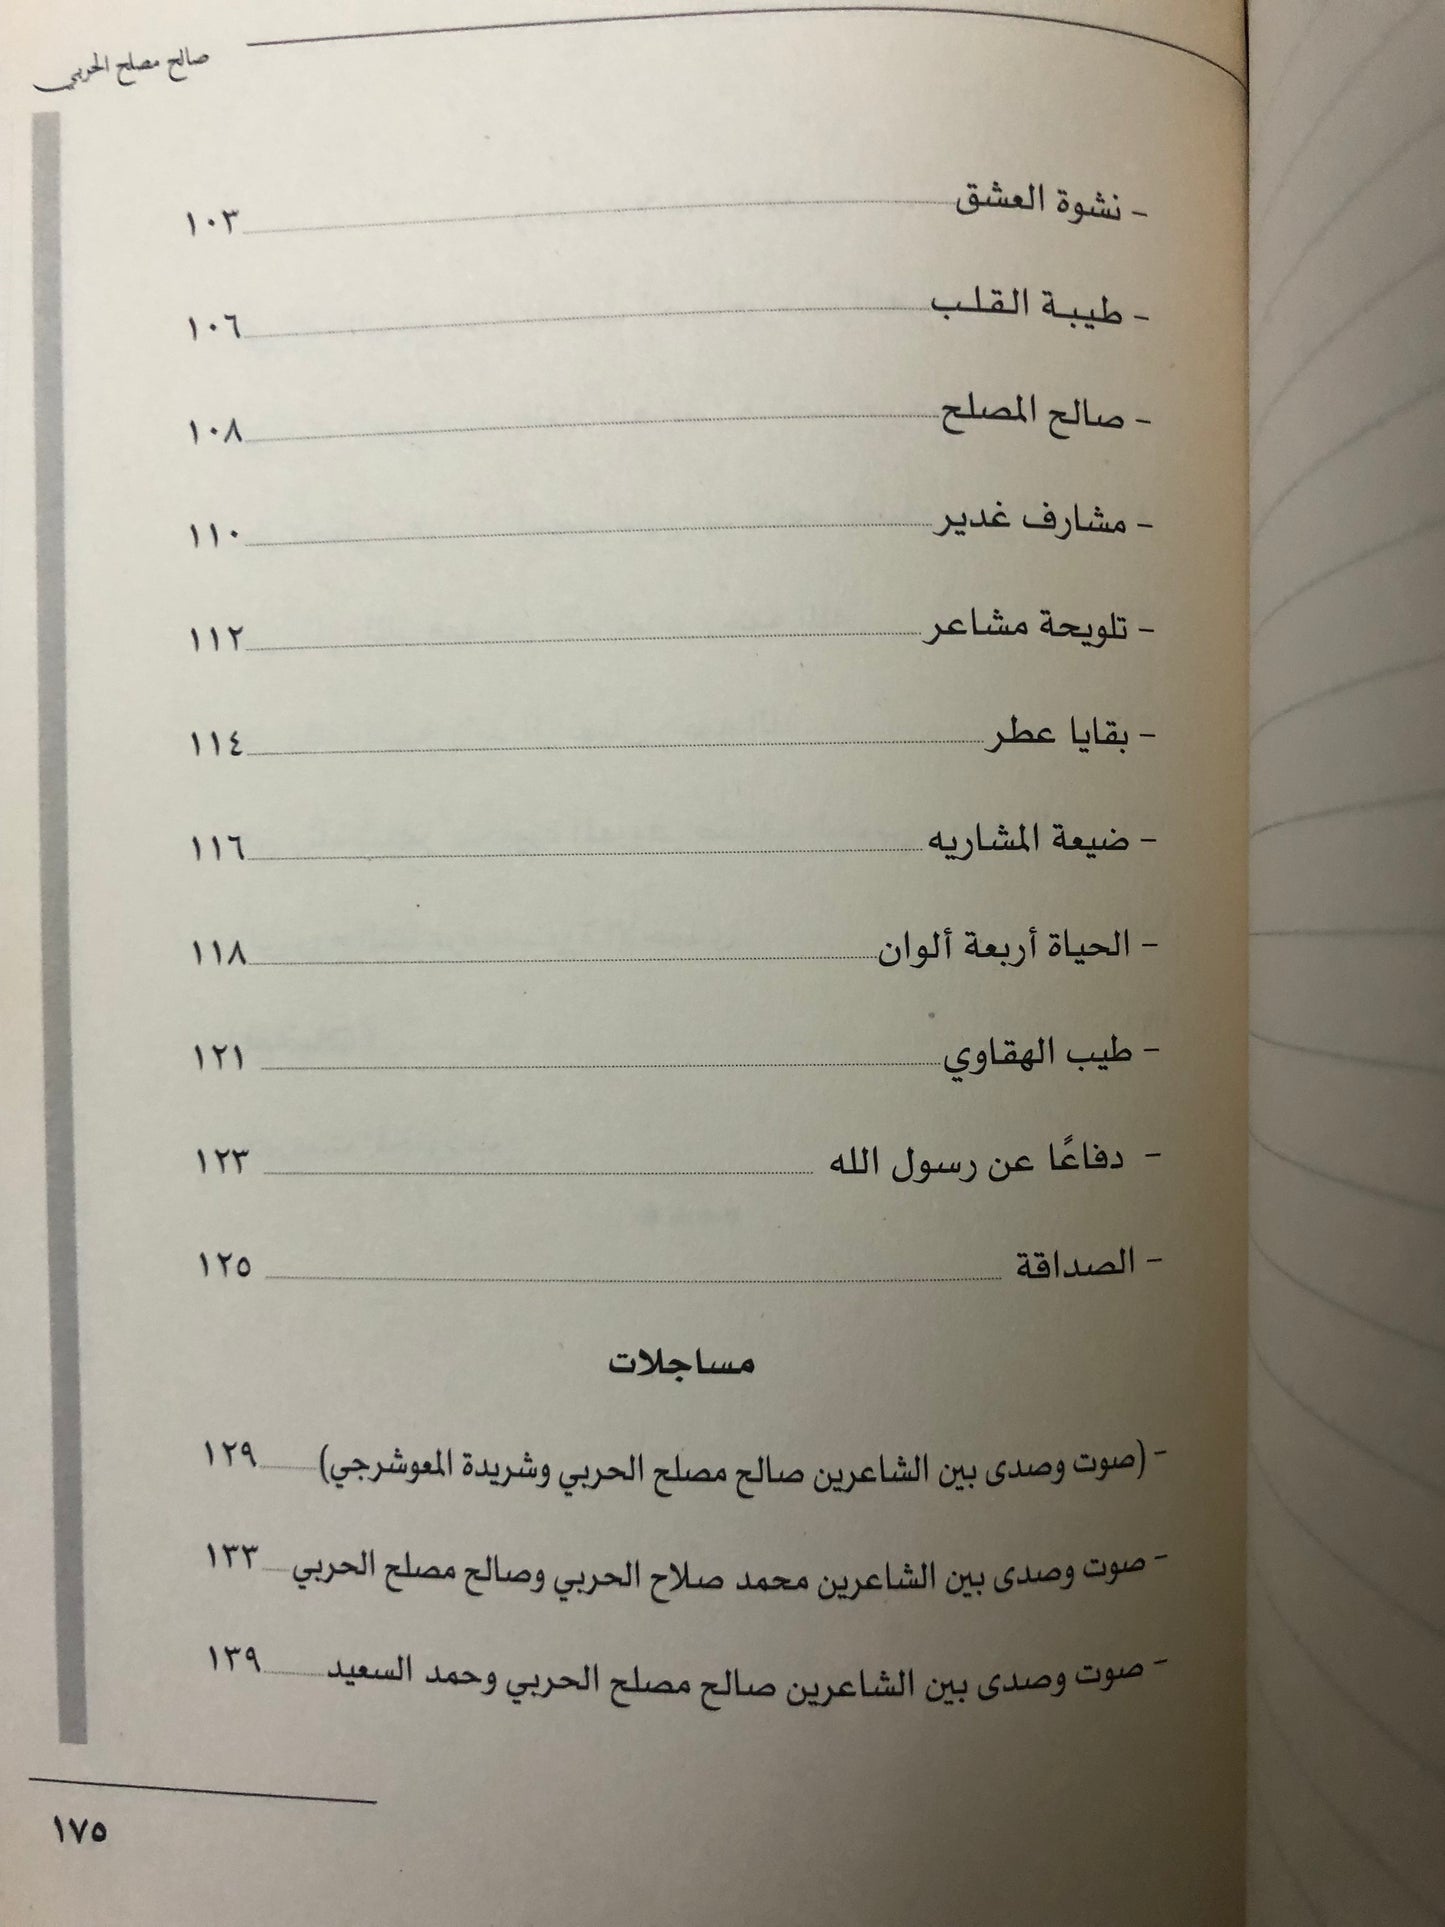 صالح مصلح الحربي
- نشوة العشق ١٠٣
- طيبة القلب ١٠٦
- صالح المصلح ١٠٨
- مشارف غدير ١١٠
- تلويحة مشاعر ١١٢
- بقايا عطر ١١٤
- ضيعة المشاريه ١١٦
- الحياة أربعة ألوان ١١٨
- طيب الهقاوي ١٢١
- دفاعًا عن رسول الله ١٢٣
- الصداقة ١٢٥
مساجلات
- (صوت وصدى بين الشاعرين صالح مصلح الحربي وشريدة المعوشرجي) ١٢٩
- صوت وصدى بين الشاعرين محمد صلاح الحربي وصالح مصلح الحربي ١٣٣
- صوت وصدى بين الشاعرين صالح مصلح الحربي وحمد السعيد ١٣٩
١٧٥